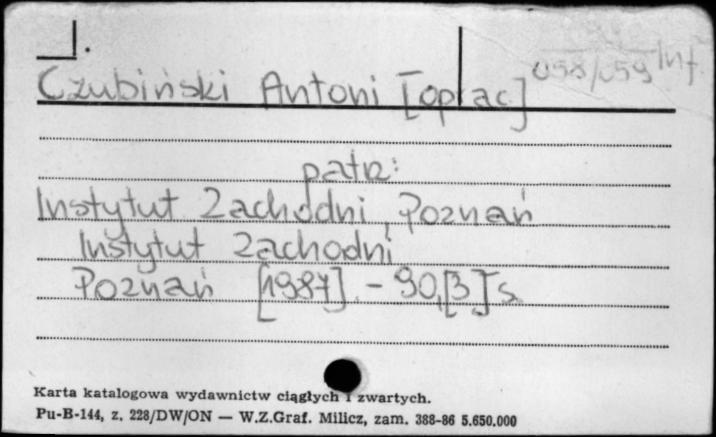 058/059 Inf.
Czubiński Antoni [oprac]
patrz:
Instytut Zachodni, Poznań
Instytut Zachodni
Poznań [1987]. - 90,[3] s.
Karta katalogowa wydawnictw ciągłych i zwartych.
Pu-B-144, z. 228/DW/ON — W.Z.Graf. Milicz, zam. 388-86 5.650.000